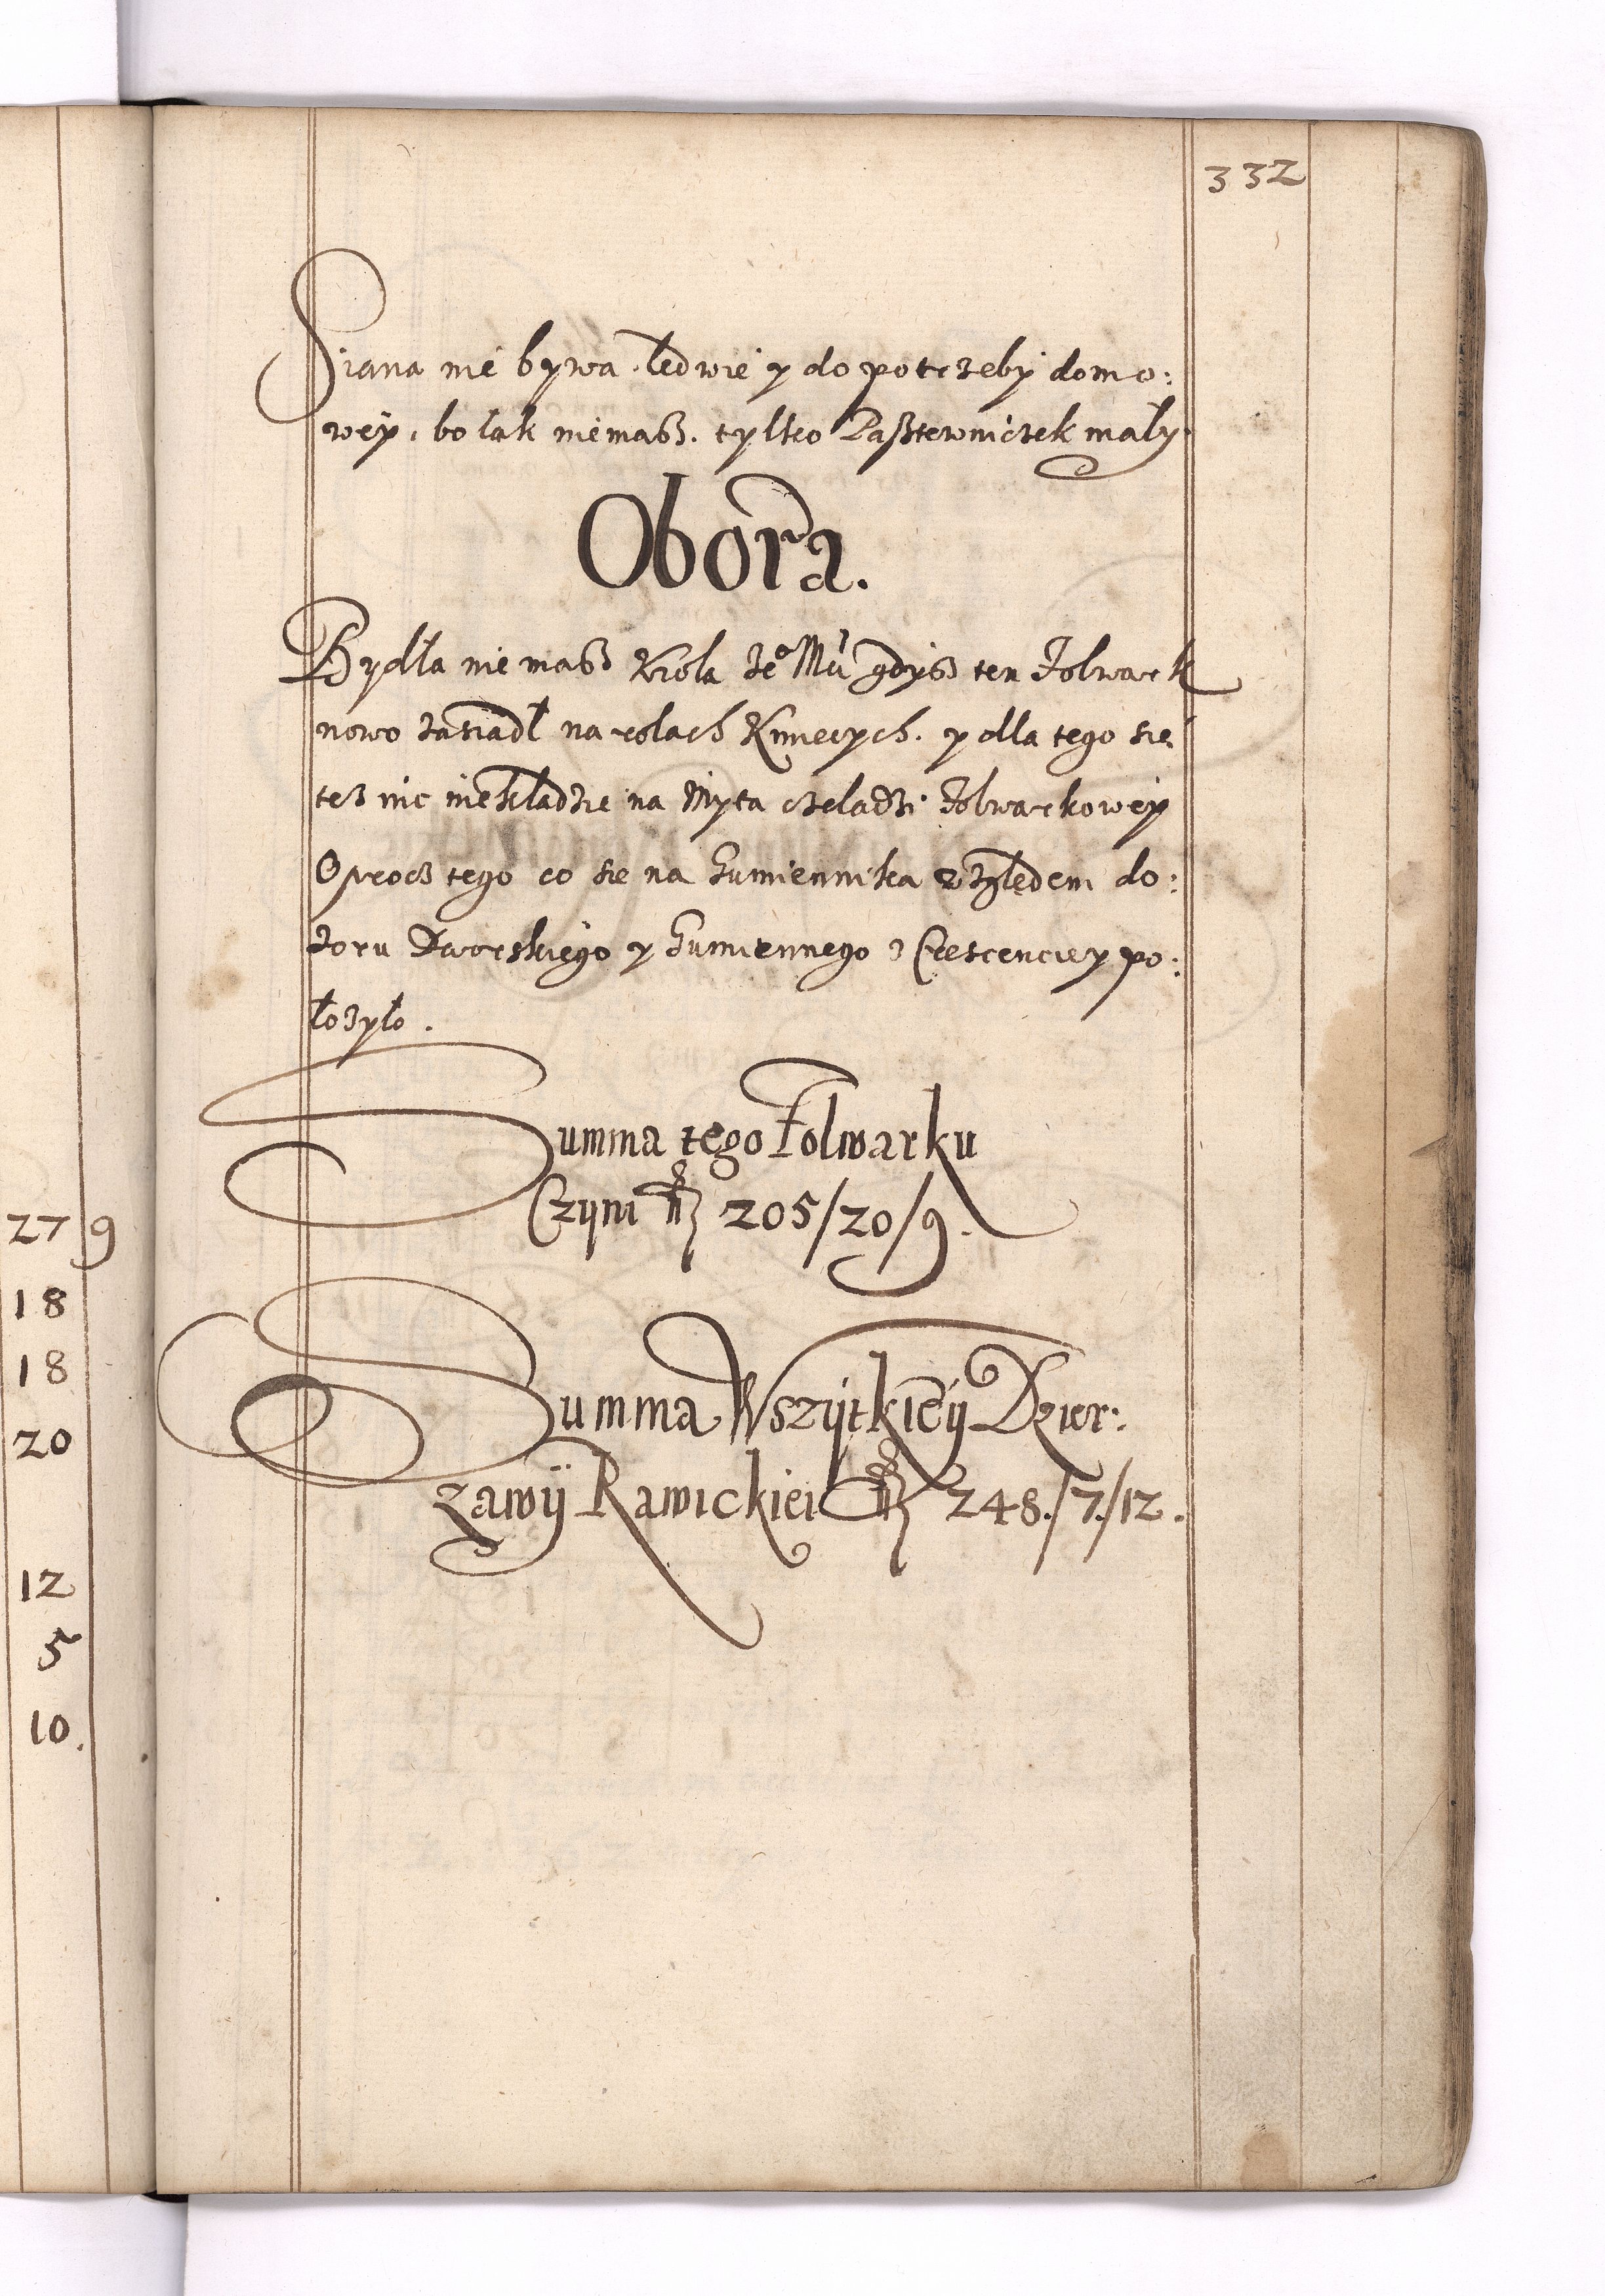 332
Siana nie bywa. ledwie y do potrzeby domo:
wey, bo łak niemasz. tylko Pasztewniczek mały.
Obora.
Bydła niemasz Krola Je° Mci gdysz ten Folwark
nowo zasiadł na rolach Kmiecych. y dla tego sie
tesz nic niekładzie na Myta czeladzi Folwarkowey
Oprocz tego co sie na Gumiennika względem do:
zoru Dworskiego y Gumiennego z Crescenciey po:
łozyło.
Summa tego Folwarku
Czyni 205/20/9.
Summa Wszytkiey Dzier:
zawy Rawickiei 248./7./12.
27 9
18
18
20
12
5
10.